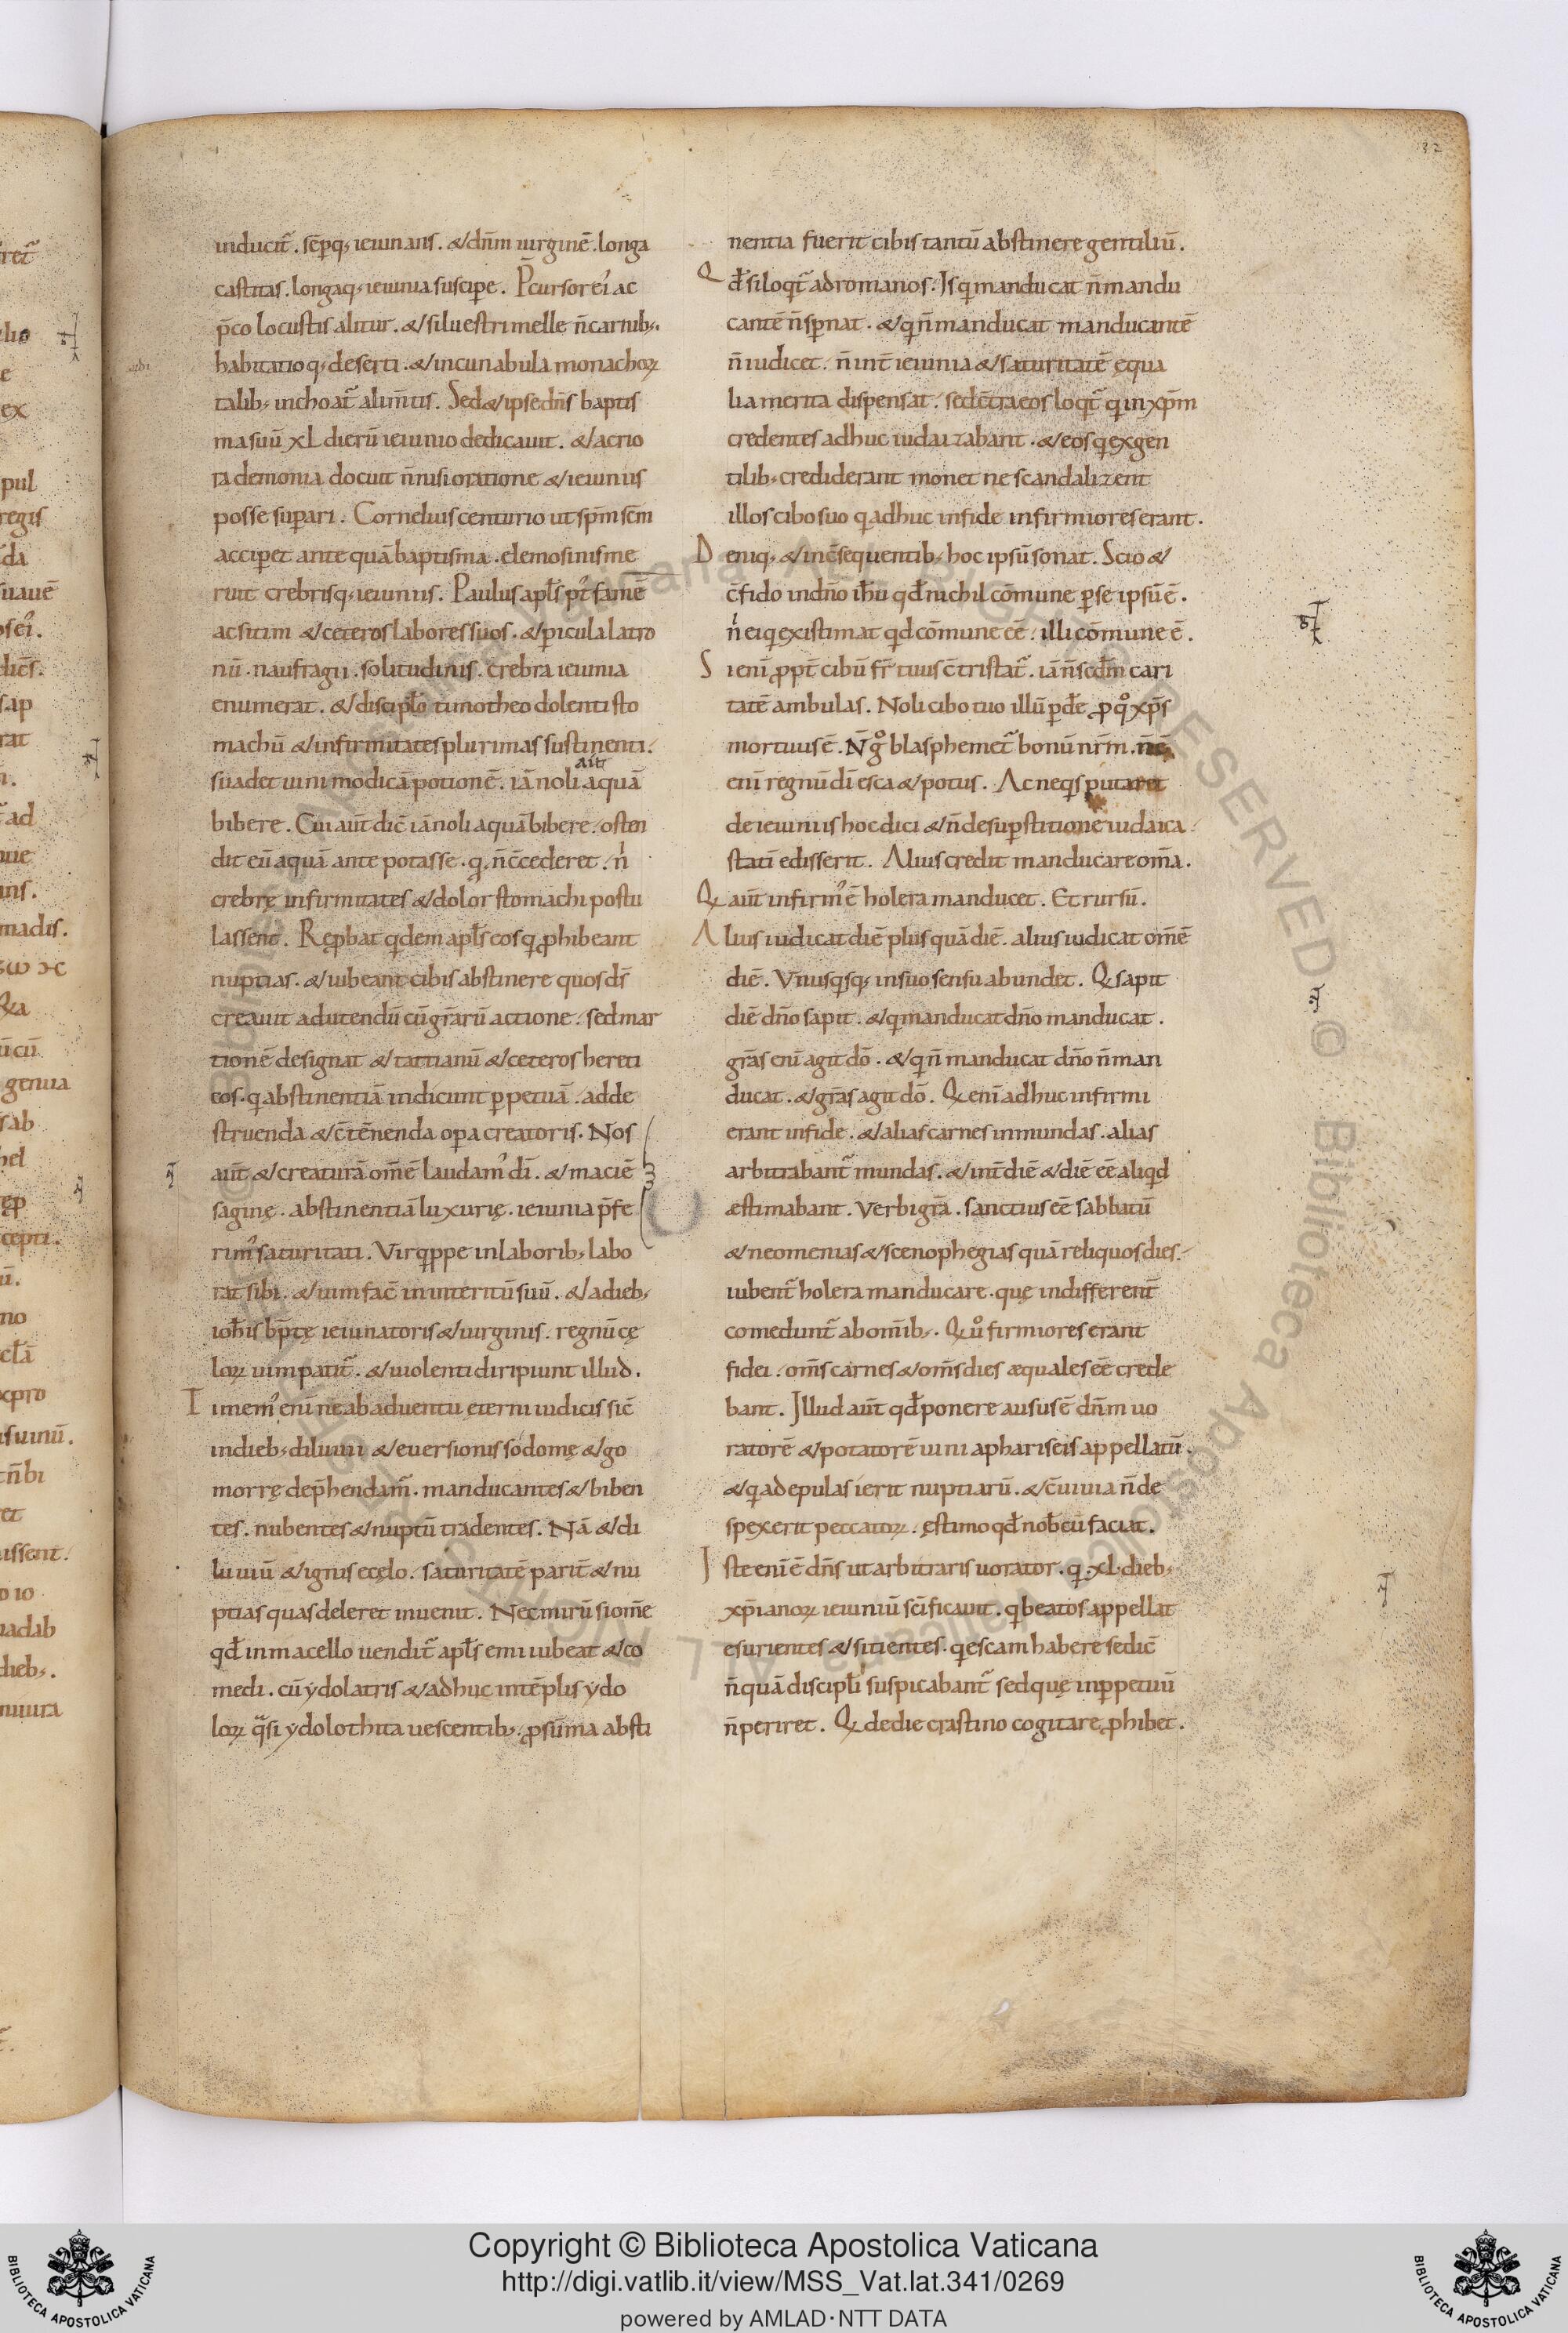 inducit᷑. sēpq; ieiunans. & dn̄m uirginē. longa
castitas. longaq; ieiunia suscipe. P̄cursor ei᷒ ac
p̄co locustis alitur. & siluestri melle n̄ carnib;.
habitatioq; deserti. & incunabula monachoꝝ
talib; inchoat᷑ alim̄tis. Sed & ipse dn̄s baptis
ma suū xL dierū ieiunio dedicauit. & acrio
ra demonia docuit n̄ nisi oratione & ieiuniis
posse supari. Cornelius centurio ut sp̄m sc̄m
accipet ante quā baptisma. elemosinis me
ruit crebrisq; ieiuniis. Paulus apl̄s pt᷒ famē
ac sitim & ceteros labores suos. & picula latro
nū. naufragii. solitudinis. crebra ieiunia
enumerat. & discipl̄o timotheo dolenti sto
machū & infirmitates plurimas sustinenti.
ait
suadet uini modicā potionē. iā noli aquā
bibere. Cui aut̄ dic̄ iā noli aquā bibere. osten
dit eū aquā ante potasse. qͥ n̄ c̄cederet. nͥ
crebrę infirmitates & dolor stomachi postu
lassent. Reꝓbat qͥdem apl̄s eos qͥ ꝓhibeant
nuptias. & iubeant cibis abstinere quos dſ̄
creauit ad utendū cū gr̄arū actione. sed mar
tionē designat & tattianū & ceteros hereti
cos. qͥ abstinentiā indicunt ꝑpetuā. adde
struenda & c̄tēnenda opa creatoris. Nos
aut̄ & creaturā om̄ē laudam᷒ dī. & maciē
saginę. abstinentiā luxurię. ieiunia p̄fe
rim᷒ saturitati. Vir qͥppe in laborib; labo
rat sibi. & uim fac̄ in interitū suū. & a dieb;
ioh̄is bp̄tę ieiunatoris & uirginis. regnū cę
loꝝ uim patit᷑. & uiolenti diripiunt illud.
Timem᷒ enī ne ab aduentu ęterni iudicis sic̄
in dieb; diluuii & euersionis sodomę & go
morrę dep̄hendam᷑. manducantes & biben
tes. nubentes & nuptū tradentes. Nā & di
luuiū & ignis ecęlo. saturitatē parit̄ & nu
ptias quas deleret inuenit. Nec mirū si om̄e
qd̄ in macello uendit᷑ apl̄s emi iubeat & co
medi. cū ydolatris & adhuc in tēplis ydo
loꝝ qͣsi ydolothita uescentib;. ꝓ sūma absti
nentia fuerit cibis tantū abstinere gentiliū.
Qd̄ si loqͥt᷑ ad romanos. Is qͥ manducat n̄ mandu
cantē n̄ spnat. & qͥ n̄ manducat manducantē
n̄ iudicet. n̄ int̄ ieiunia & saturitatē ęqua
lia merita dispensat. sed c̄tra eos loqͥt᷑ qͥ in xp̄m
credentes adhuc iudaizabant. & eos qͥ ex gen
tilib; crediderant monet ne scandalizent
illos cibo suo qͥ adhuc in fide infirmiores erant.
Deniq; & in c̄sequentib; hoc ipsū sonat. Scio &
c̄fido in dn̄o ih̄u qd̄ nichil cōmune per se ipsū ē.
nͥ ei qͥ existimat qd cōmune ēē. illi cōmune ē.
Si enī ꝓpt̄ cibū fr̄ tuus c̄tristat᷑. iā n̄ scd̄m cari
tatē ambulas. Noli cibo tuo illū ꝑde ꝓ qͦ xp̄s
mortuus ē. N̄ gͦ blasphemet᷑ bonū nr̄m. n̄ ē
enī regnū dī esca & potus. Ac ne qͥs putaret
de ieiuniis hoc dici & n̄ de supstitione iudaica.
statī edisserit. Alius credit manducare om̄a.
Qͥ aut̄ infirm᷒ ē holera manducet. Et rursū.
Alius iudicat diē plus quā diē. alius iudicat om̄ē
diē. Vnusqͥsq; in suo sensu abundet. Qͥ sapit
diē dn̄o sapit. & qͥ manducat dn̄o manducat.
gr̄as enī agit dō. & qͥ n̄ manducat dn̄o n̄ man
ducat. & gr̄as agit dō. Qͥ enī adhuc infirmi
erant in fide. & alias carnes inmundas. alias
arbitrabant᷑ mundas. & int̄ diē & diē ēē aliqͥd
æstimabant. Verbi gr̄a. sanctius ēē sabbatū
& neomenias & scenophegias quā reliquos dies.
iubent᷑ holera manducare. quę indifferent̄
comedunt᷑ ab om̄ib;. Qͥ uͦ firmiores erant
fidei. om̄s carnes & om̄s dies æquales ēē crede
bant. Illud aut̄ qd̄ ponere ausus ē dn̄m uo
ratorē & potatorē uini a phariseis appellatū.
& qͥ ad epulas ierit nuptiarū. & c̄uiuia n̄ de
spexerit peccatoꝝ. ęstimo qd̄ nob̄ cū faciat.
Iste enī ē dn̄s ut arbitraris uorator. qͥ .xl. dieb;
xp̄ianoꝝ ieiuniū sc̄ificauit. qͥ beatos appellat
esurientes & sitientes. qͥ escam habere se dic̄
n̄ quā discipl̄i suspicabant᷑ sed quę in ꝑpetuū
n̄ periret. Qͥ de die crastino cogitare ꝓhibet.
Copyright © Biblioteca Apostolica Vaticana
http://digi.vatlib.it/view/MSS_Vat.lat.341/0269
powered by AMLAD·NTT DATA
BIBLIOTECA APOSTOLICA VATICANA
BIBLIOTECA APOSTOLICA VATICANA